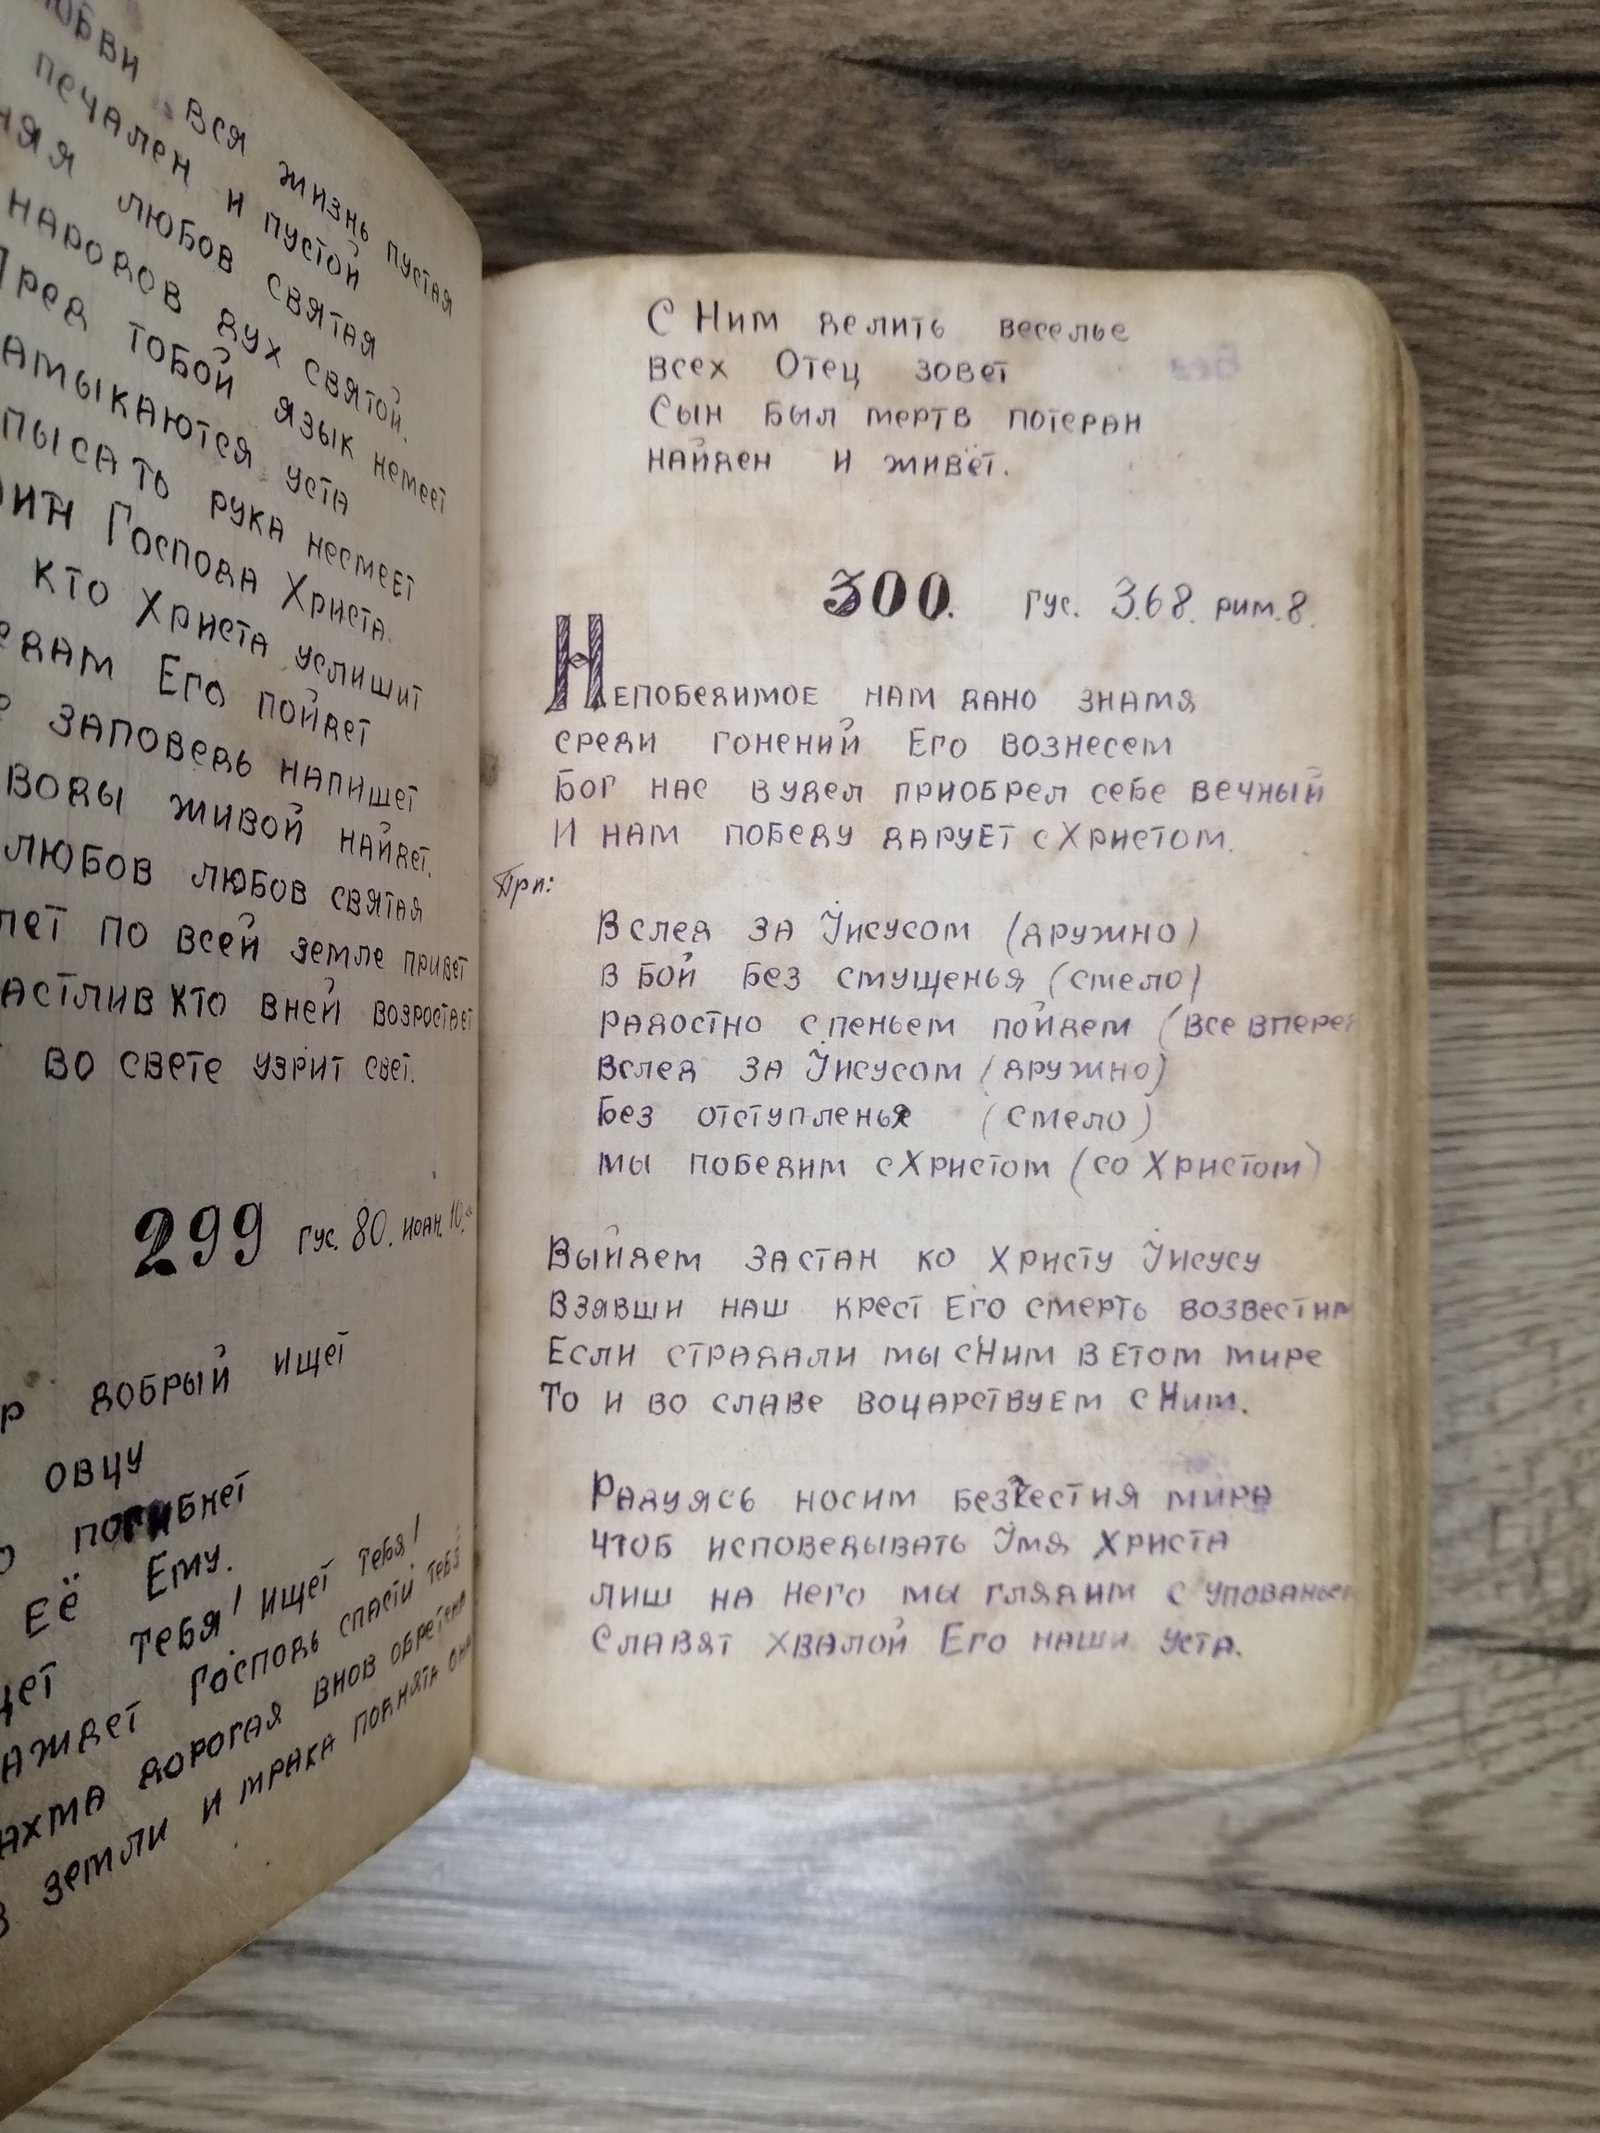 вся жизнь пустая
печален и пустой
любов святая
народов дух святой.
Пред тобой язык немеет
уста
рука несмеет
Господа Христа.
кто Христа услишит
Его пойдет
заповедь напишет
воды живой найдет.
любов любов святая
по всей земле привет
кто вней возростает
во свете узрит свет.
299 гус. 80. иоан. 10.
добрый ищет
овцу
погибнет
Её Ему.
тебя! ищет тебя!
Господь спасти тебя
дорогая внов обретена
земли и мрака поднята она
С Ним делить веселье
всех Отец зовет
Сын был мертв потеран
найден и живет.
300. гус. 3.68. рим. 8.
Непобедимое нам дано знамя
среди гонений Его вознесем
Бог нас вудел приобрел себе вечный
И нам победу дарует сХристом.
При:
Вслед за Іисусом (дружно)
в бой без смущенья (смело)
радостно спеньем пойдем (все вперед
вслед за Іисусом (дружно)
Без отступленья (смело)
мы победим сХристом (со Христом)
Выйдем застан ко Христу Іисусу
Взявши наш крест Его смерть возвестим
Если страдали мы сНим в етом мире
То и во славе воцарствуем с Ним.
Радуясь носим безчестия мира
чтоб исповедывать Імя Христа
лиш на него мы глядим с упованьем
Славят хвалой Его наши уста.